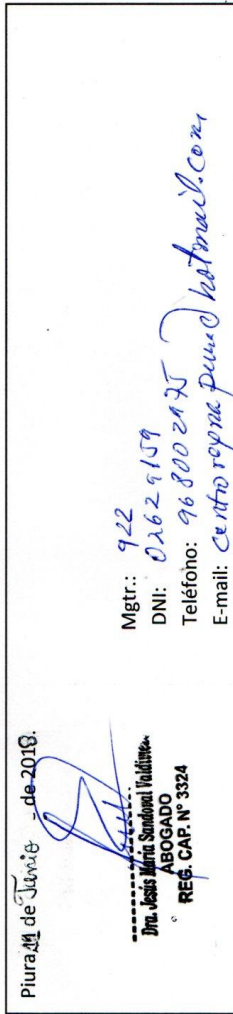 Piura 11 de Junio - de 2018.
Dra. Jesús María Sandoval
ABOGADO
REG. CAP. N° 3324
Mgtr.: 922
DNI: 02629159
Teléfono: 968002975
E-mail: hotmail.com